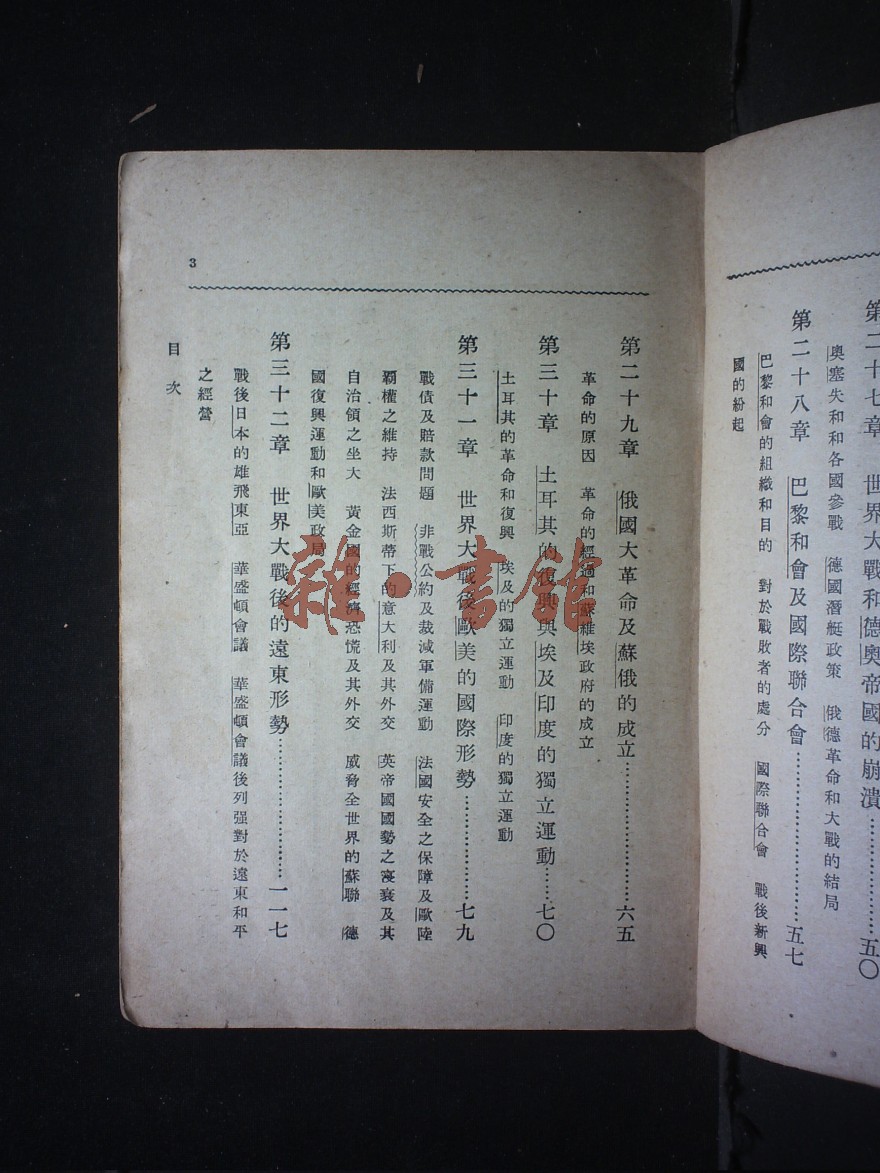 第二十七章　世界大戰和德奧帝國的崩潰……………五〇
奧塞失和和各國參戰　德國潛艇政策　俄德革命和大戰的結局
第二十八章　巴黎和會及國際聯合會……………五七
巴黎和會的組織和目的　對於戰敗者的處分　國際聯合會　戰後新興
國的紛起
3
第二十九章　俄國大革命及蘇俄的成立……………六五
革命的原因　革命的經過和蘇維埃政府的成立
第三十章　土耳其的復興與埃及印度的獨立運動……七〇
土耳其的革命和復興　埃及的獨立運動　印度的獨立運動
第三十一章　世界大戰後歐美的國際形勢……………七九
戰債及賠款問題　非戰公約及裁減軍備運動　法國安全之保障及歐陸
霸權之維持　法西斯蒂下的意大利及其外交　英帝國國勢之寖衰及其
自治領之坐大　黃金國的經濟恐慌及其外交　威脅全世界的蘇聯　德
國復興運動和歐美政局
第三十二章　世界大戰後的遠東形勢……………一一七
戰後日本的雄飛東亞　華盛頓會議　華盛頓會議後列强對於遠東和平
之經營
目次
雜·書館